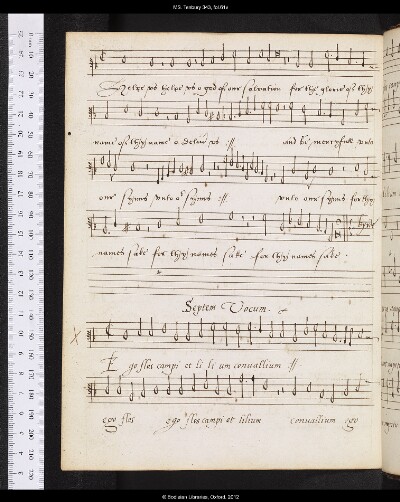 MS. Tenbury 343, fol. 61v
Helpe us helpe us o god of our salvation for the glorie of thy
name of thy name o deliver us :||: and be mercyfull unto
our synnes unto or synnes :||: unto our synnes for thy
names sake for thy names sake for thy names sake :
Septem Vocum.
Ego flos campi et li li um convallium :||:
ego flos ego flos campi et lilium convallium ego
© Bodleian Libraries, Oxford, 2012